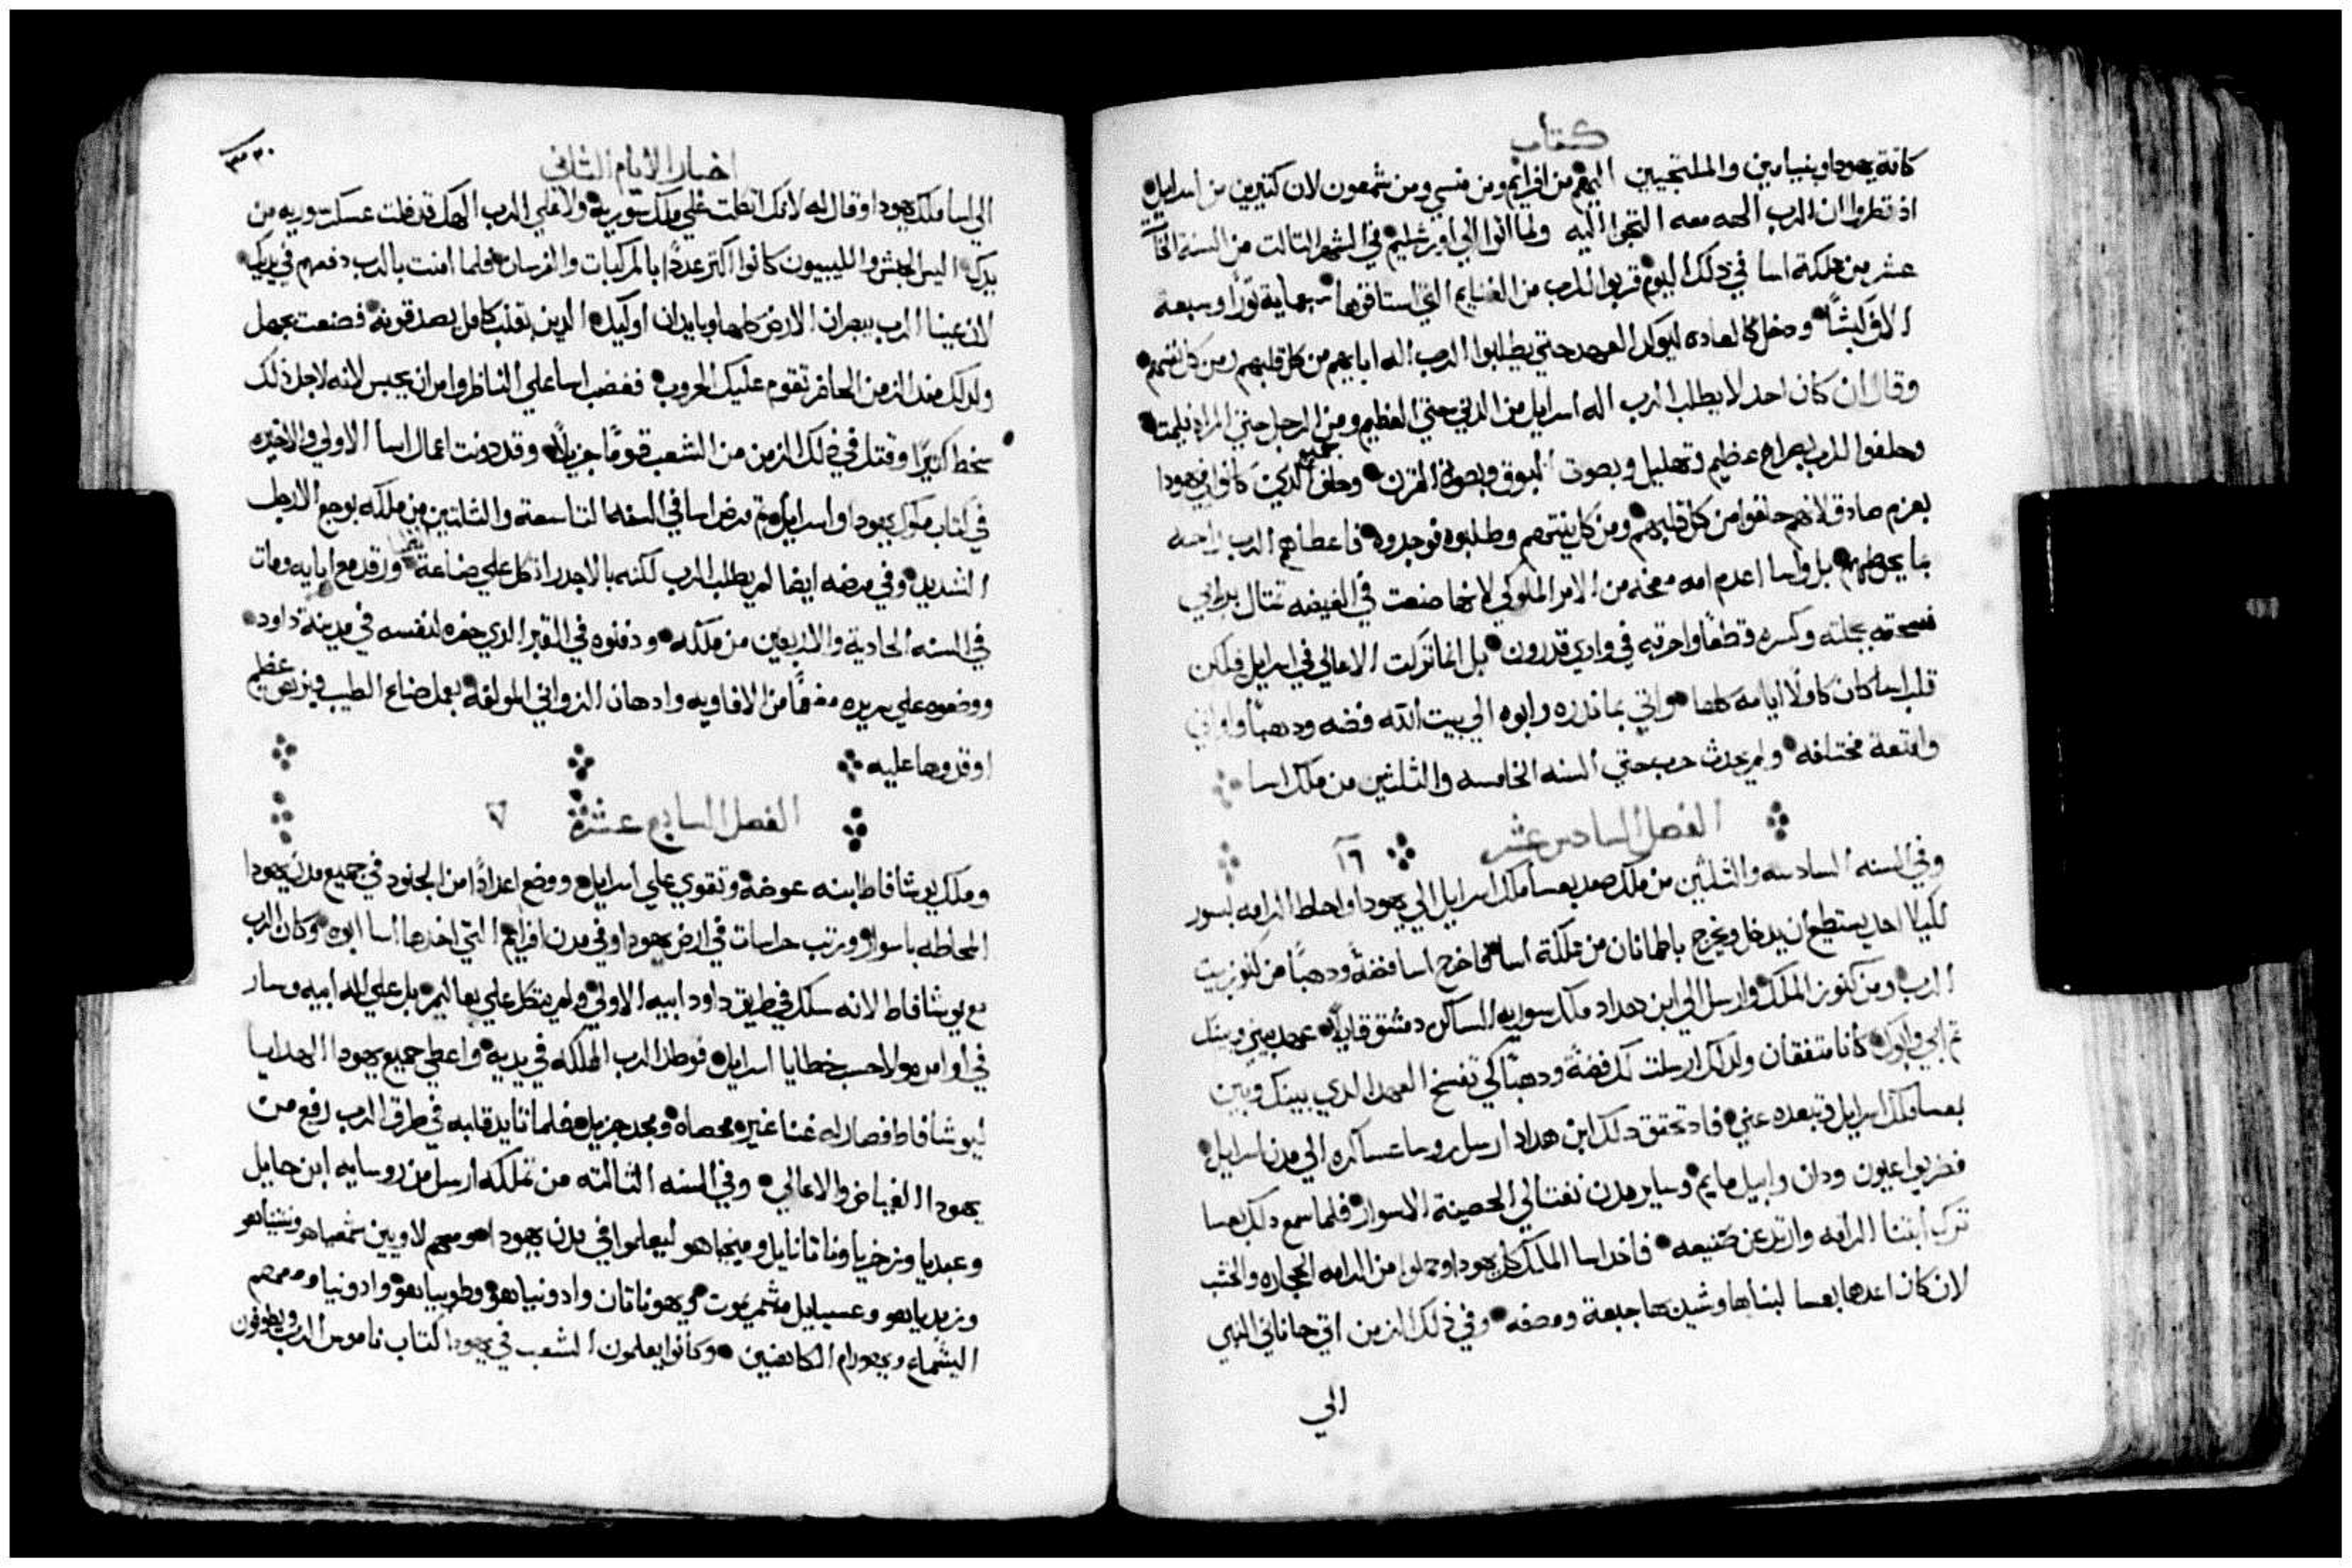 كتاب
كافة يهودا وبنيامين والملتجيين اليهم من افرايم ومن منسي ومن شمعون لان كتيرين من اسرايل
اذ نظروا ان الرب الهه معه التجوا اليه ولما اتوا الي اورشليم في الشهر التالت من السنة الخامسة
عشر من مملكة اسا في ذلك اليوم قربوا للرب من الغنايم التي استاقوها سبعماية تورًا وسبعة
الاف كبشًا ودخل كالعاده ليوكد العهد حتي يطلبوا الرب اله ابايهم من كل قلبهم ومن كل نفسهم
وقال ان كان احد لا يطلب الرب اله اسرايل من الدني حتي العظيم ومن الرجل حتي المراه فليمت
وحلفوا للرب بصراخ عظيم وتهليل وبصوت البوق وبصوت القرن وحلف جميع الدين كانوا في يهودا
بعزم صادق لانهم حلفوا من كل قلبهم ومن كل نيتهم وطلبوه فوجدوه فاعطاهم الرب راحه
بل واسا اعدم امه معخه من الامر الملوكي لانها صنعت في الغيضه تمتال
فسحقه بجملته وكسره قطعًا واحرقه في وادي قدرون بل انما تركت الاعالي في اسرايل فلكن
قلب اسا كان كاملًا ايامه كلها واتي بما ندره ابوه الي بيت الله فضه ودهبًا واواني
وامتعة مختلفه ولم يحدث حرب حتي السنه الخامسه والتلتين من ملك اسا
الفصل السادس عشر ١٦
وفي السنه السادسه والتلتين من ملكه صعد بعسا ملك اسرايل الي يهودا واحاط الرامه بسور
لكيلا احد يستطيع ان يدخل ويخرج باطمانان من مملكة اسا فاخرج اسا فضةً ودهبًا من كنوز بيت
الرب ومن كنوز الملك وارسل الي ابن هداد ملك سوريه الساكن دمشق قايلًا عهد بيني وبينك
تم ابي وابوك كانا متفقان ولدلك ارسلت لك فضةً ودهبًا كي تفسخ العهد الدي بينك وبين
بعسا ملك اسرايل وتبعده عني فاد تحقق دلك ابن هداد ارسل روسا عساكره الي مدن اسرايل
فضربوا عيون ودان وابيل مايم وساير مدن نفتالي الحصينة الاسوار فلما سمع دلك بعسا
ترك ابتنا الرامه وارتد عن صنيعه فاخد اسا الملك كل يهودا وحملوا من الرامه الحجاره والخشب
لان كان اعدها بعسا لبناها وشيد بها جبعة ومصفه وفي ذلك الزمن اتي حاناني النبي
الي
اخبار الايام التاني
٣٣٠
الي اسا ملك يهودا وقال له لانك اتكلت علي ملك سورية ولا علي الرب الهك قد فلت عسكر سوريه من
يدك اليس الحبش والليبيون كانوا اكتر عددًا بالمركبات والفرسان فلما امنت بالرب دفعهم في يديك
لان عينا الرب يبصران الارض كلها ويايدان اوليك الدين بقلب كامل يصدقونه فصنعت بجهل
ولدلك مند الزمن الحاضر تقوم عليك الحروب فغضب اسا علي الناظر وامر ان يحبس لانه لاجل ذلك
سخط كتيرًا وقتل في ذلك الزمن من الشعب قومًا جزيلًا وقد دونت اعمال اسا الاولي والاخيره
في كتاب ملوك يهودا واسرايل تم مرض اسا في السنه التاسعة والتلتين من ملكه بوجع الارجل
الشديد وفي مرضه ايضا لم يطلب الرب لكنه بالاجدر اتكل علي صناعة ورقد مع ابايه ومات
في السنه الحادية والاربعين من ملكه ودفنوه في القبر الدي حفره لنفسه في مدينة داود
ووضعوه علي سريره مفعمًا من الافاويه وادهان الزواني المولفة بعمل صناع الطيب وبزهي عظيم
اوقدوها عليه
الفصل السابع عشر ٧
وملك يوشافاط ابنه عوضه وتقوي علي اسرايل ووضع اعدادًا من الجنود في جميع مدن يهودا
المحاطه باسوار ورتب حراسات في ارض يهودا وفي مدن افرايم التي اخدها اسا ابوه وكان الرب
مع يوشافاط لانه سلك في طريق داود ابيه الاولي ولم يتكل علي بعاليم بل علي اله ابيه وسار
في اوامره ولا حسب خطايا اسرايل فوطد الرب المملكه في يديه واعطي جميع يهودا الهدايا
ليوشافاط فصار له غنا غير محصاه ومجد جزيل فلما تايد قلبه في طرق الرب رفع من
يهودا الغياض والاعالي وفي السنه التالته من تملكه ارسل من روسايه ابن حايل
وعبديا وزخريا وناتانايل وميخياهو ليعلموا في مدن يهودا ومعهم لاويين شمعياهو ونتنياهو
وزبدياهو وعسياييل وشمريموت ويهوناتان وادونياهو وطوبياهو وادونيا ومعهم
اليشماع ويهورام الكاهنين وكانوا يعلمون الشعب في يهودا كتاب ناموس الرب ويطوفون